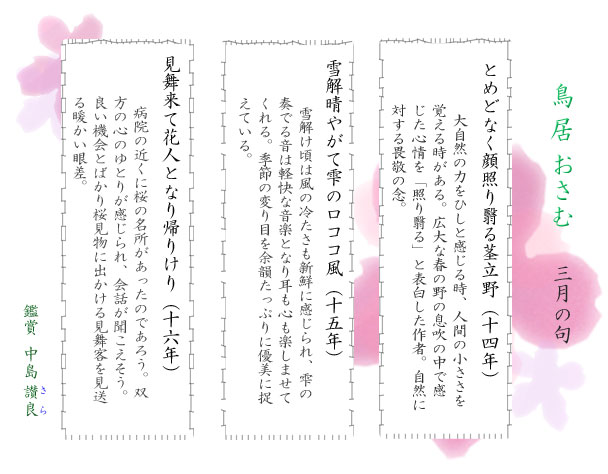 鳥居おさむ
三月の句
とめどなく顔照り翳る茎立野（十四年）
大自然の力をひしと感じる時、人間の小ささを
覚える時がある。広大な春の野の息吹の中で感
じた心情を「照り翳る」と表白した作者。自然に
対する畏敬の念。
雪解晴やがて雫のロココ風（十五年）
雪解け頃は風の冷たさも新鮮に感じられ、雫の
奏でる音は軽快な音楽となり耳も心も楽しませて
くれる。季節の変り目を余韻たっぷりに優美に捉
えている。
見舞来て花人となり帰りけり（十六年）
病院の近くに桜の名所があったのであろう。双
方の心のゆとりが感じられ、会話が聞こえそう。
良い機会とばかり桜見物に出かける見舞客を見送
る暖かい眼差。
鑑賞 中島 讃良
さら